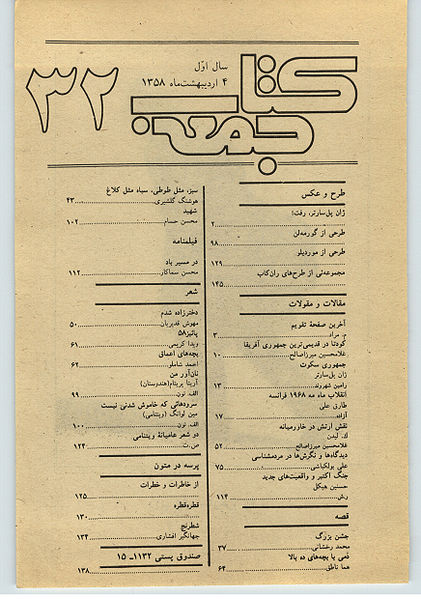 کتاب جمعه
۳۲
سال اوّل
۴ اردیبهشت‌ماه ۱۳۵۸
طرح و عکس
ژان پل‌سارتر، رفت!
۲
طرحی از گورمه‌لن
۹۸
طرحی از موردیلو
۱۲۹
مجموعه‌ئی از طرح‌های ران‌کاب
۱۴۵
مقالات و مقولات
آخرین صفحهٔ تقویم
م. مراد ۳
کودتا در قدیمی‌ترین جمهوری آفریقا
غلامحسین میرزاصالح ۱۰
جمهوری سکوت
ژان پل‌سارتر
رامین شهروند ۱۳
انقلاب ماه مه ۱۹۶۸ فرانسه
طارق علی
آزاده ۱۷
نقش ارتش در خاورمیانه
ک. لیدن
غلامحسین میرزاصالح ۵۲
دیدگاه‌ها و نگرش‌ها در مردم‌شناسی
علی بولکباشی ۷۵
جنگ اکتبر و واقعیت‌های جدید
حسنین هیکل
ر.ش ۱۱۴
قصه
جشن بزرگ
محمد رخشانی ۳۷
دَمی با بچه‌های ده بالا
هما ناطق ۶۴
سبز، مثل طوطی، سیاه مثل کلاغ
هوشنگ گلشیری ۴۳
شهید
محسن حسام ۱۰۲
فیلمنامه
در مسیر باد
محسن سماکار ۱۱۲
شعر
دخترزاده شدم
مهوش قدیریان ۵۰
پائیز۵۸
ویدا کریمی ۶۱
بچه‌های اعماق
احمد شاملو ۶۲
نان‌آور من
آریتا پریتام(هندوستان)
الف نون ۹۹
سرودهائی که خاموش شدنی نیست
مین لوانگ (ویتنامی)
الف. نون ۱۰۰
دو شعر عامیانهٔ ویتنامی
ص.ت ۱۲۴
پرسه در متون
از خاطرات و خطرات
۱۲۵
قطره‌قطره
۱۳۰
شطرنج
جهانگیر افشاری ۱۳۴
صندوق پستی ۱۱۳۲ـ ۱۵
۱۳۸